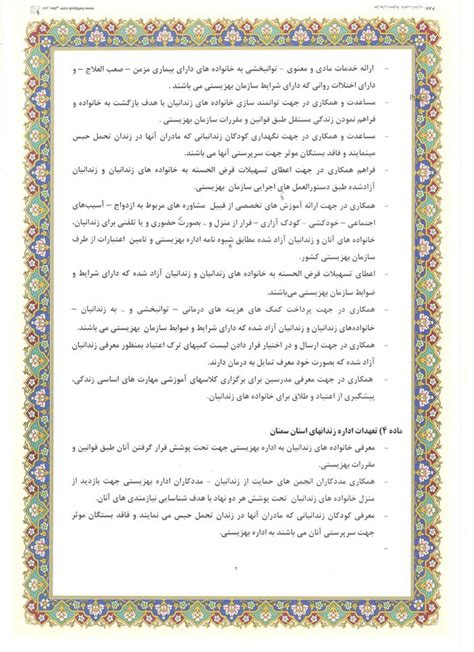 - ارائه خدمات مادی و معنوی – توانبخشی به خانواده های دارای بیماری مزمن – صعب العلاج – و
دارای اختلالات روانی که دارای شرایط سازمان بهزیستی می باشند.
- مساعدت و همکاری در جهت توانمند سازی خانواده های زندانیان با هدف بازگشت به خانواده و
فراهم نمودن زندگی مستقل طبق قوانین و مقررات سازمان بهزیستی .
- مساعدت و همکاری در جهت نگهداری کودکان زندانیانی که مادران آنها در زندان تحمل حبس
مینمایند و فاقد بستگان موثر جهت سرپرستی آنها می باشند.
- فراهم همکاری در جهت اعطای تسهیلات قرض الحسنه به خانواده های زندانیان و زندانیان
آزادشده طبق دستورالعمل های اجرایی سازمان بهزیستی.
- همکاری در جهت ارائه آموزش های تخصصی از قبیل مشاوره های مربوط به ازدواج – آسیب‌های
اجتماعی – خودکشی – کودک آزاری – فرار از منزل و .. بصورت حضوری و یا تلفنی برای زندانیان،
خانواده های آنان و زندانیان آزاد شده مطابق شیوه نامه اداره بهزیستی و تامین اعتبارات از طرف
سازمان بهزیستی کشور.
- اعطای تسهیلات قرض الحسنه به خانواده های زندانیان و زندانیان آزاد شده که دارای شرایط و
ضوابط سازمان بهزیستی می‌باشند.
- همکاری در جهت پرداخت کمک های هزینه های درمانی – توانبخشی و .. به زندانیان –
خانواده‌های زندانیان و زندانیان آزاد شده که دارای شرایط و ضوابط سازمان بهزیستی می باشند.
- همکاری در جهت ارسال و در اختیار قرار دادن لیست کمپهای ترک اعتیاد بمنظور معرفی زندانیان
آزاد شده که بصورت خود معرف تمایل به درمان دارند.
- همکاری در جهت معرفی مدرسین برای برگزاری کلاسهای آموزشی مهارت های اساسی زندگی،
پیشگیری از اعتیاد و طلاق برای خانواده های زندانیان.
ماده ۴) تعهدات اداره زندانهای استان سمنان
- معرفی خانواده های زندانیان به اداره بهزیستی جهت تحت پوشش قرار گرفتن آنان طبق قوانین و
مقررات بهزیستی.
- همکاری مددکاران انجمن های حمایت از زندانیان – مددکاران اداره بهزیستی جهت بازدید از
منزل خانواده های زندانیان تحت پوشش هر دو نهاد با هدف شناسایی نیازمندی های آنان
- معرفی کودکان زندانیانی که مادران آنها در زندان تحمل حبس می نمایند و فاقد بستگان موثر
جهت سرپرستی آنان می باشند به اداره بهزیستی.
۲